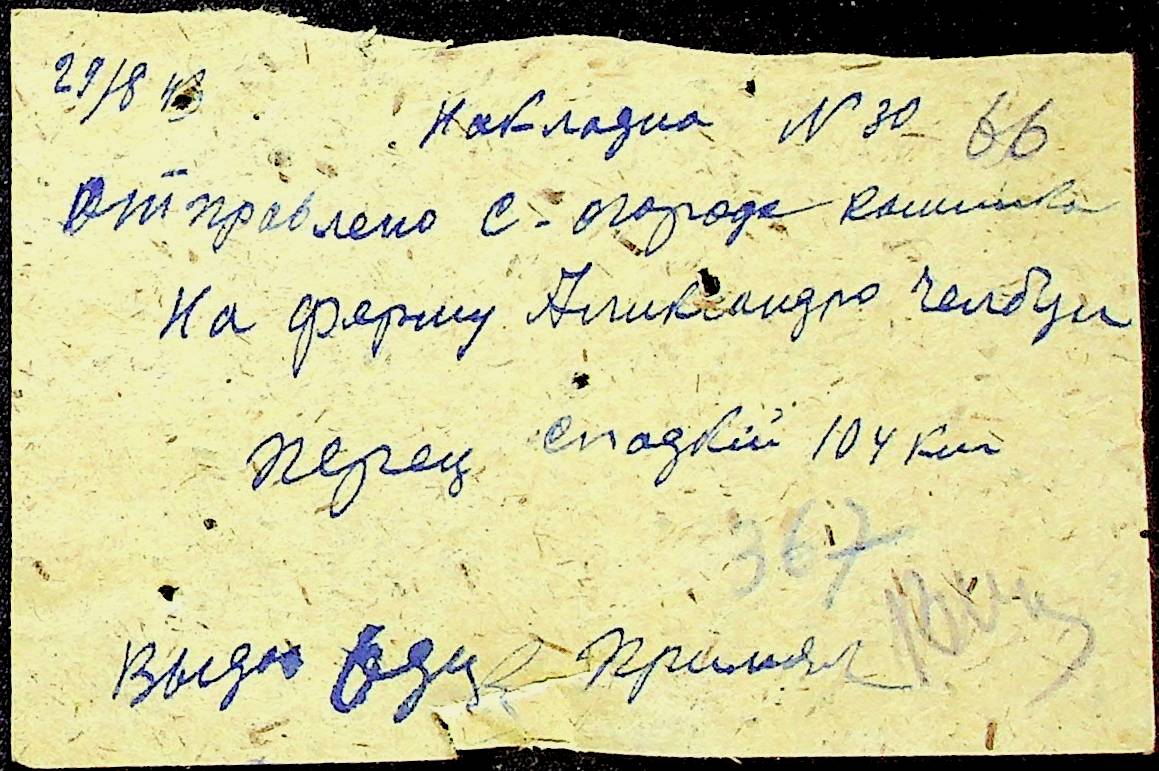 29/8 43
Накладна N 30 66
Отправлено с-огорода
На ферму Александро
Перец сладкій 104 кил
367
Выдал Принял